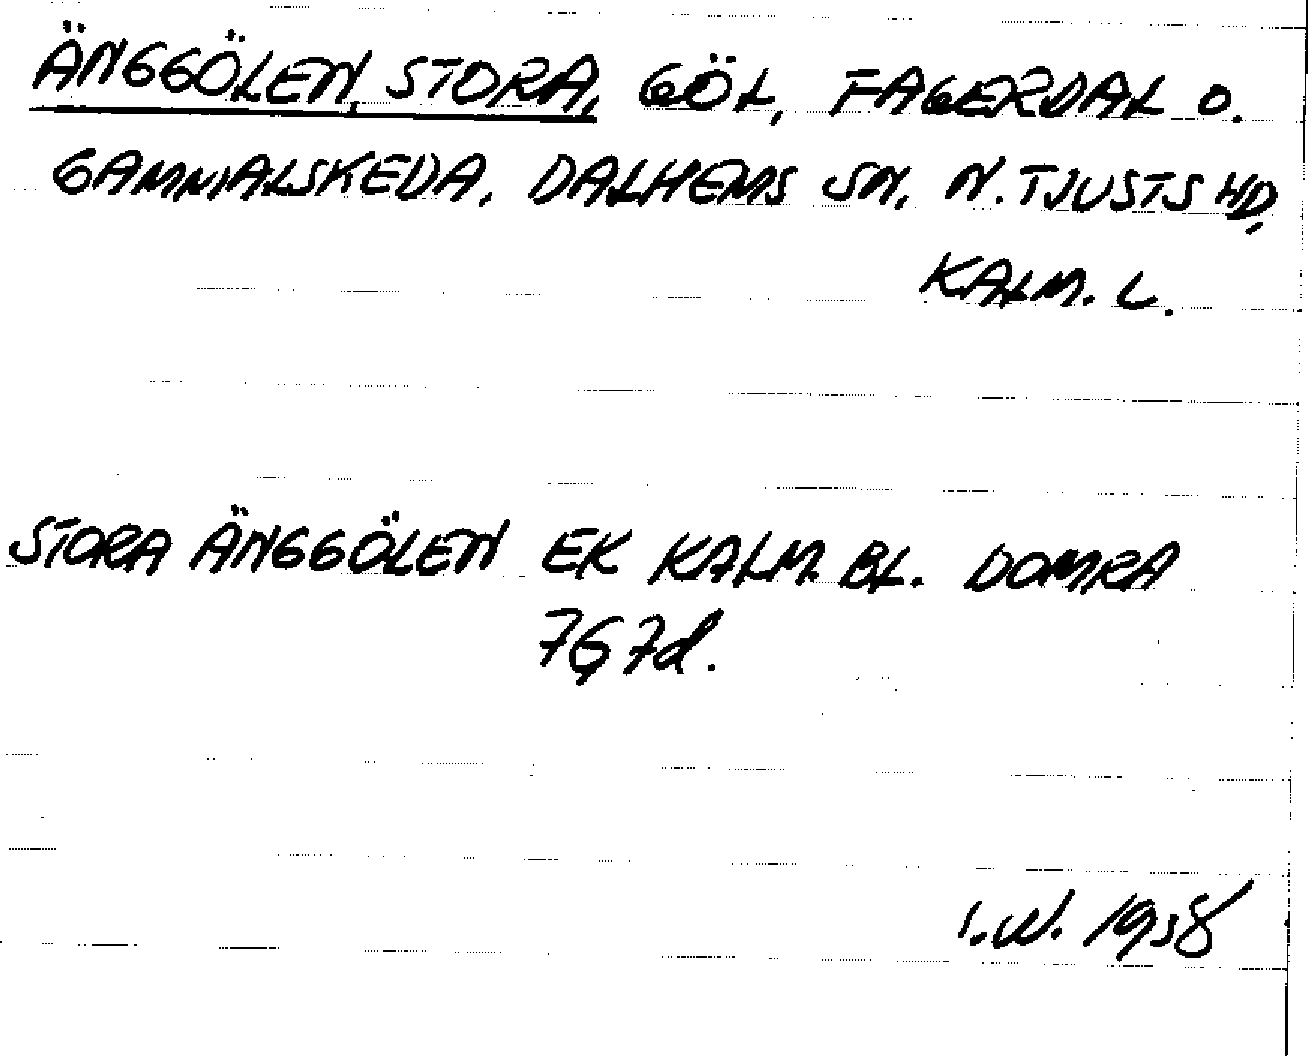 ÄNGGÖLEN, STORA, GÖL, FAGERDAL O.
GAMMALSKEDA, DALHEMS SN, N. TJUSTS HD,
KALM. L.
STORA ÄNGGÖLEN EK KALM. BL. DOMRA
7G7d.
I.W. 1958